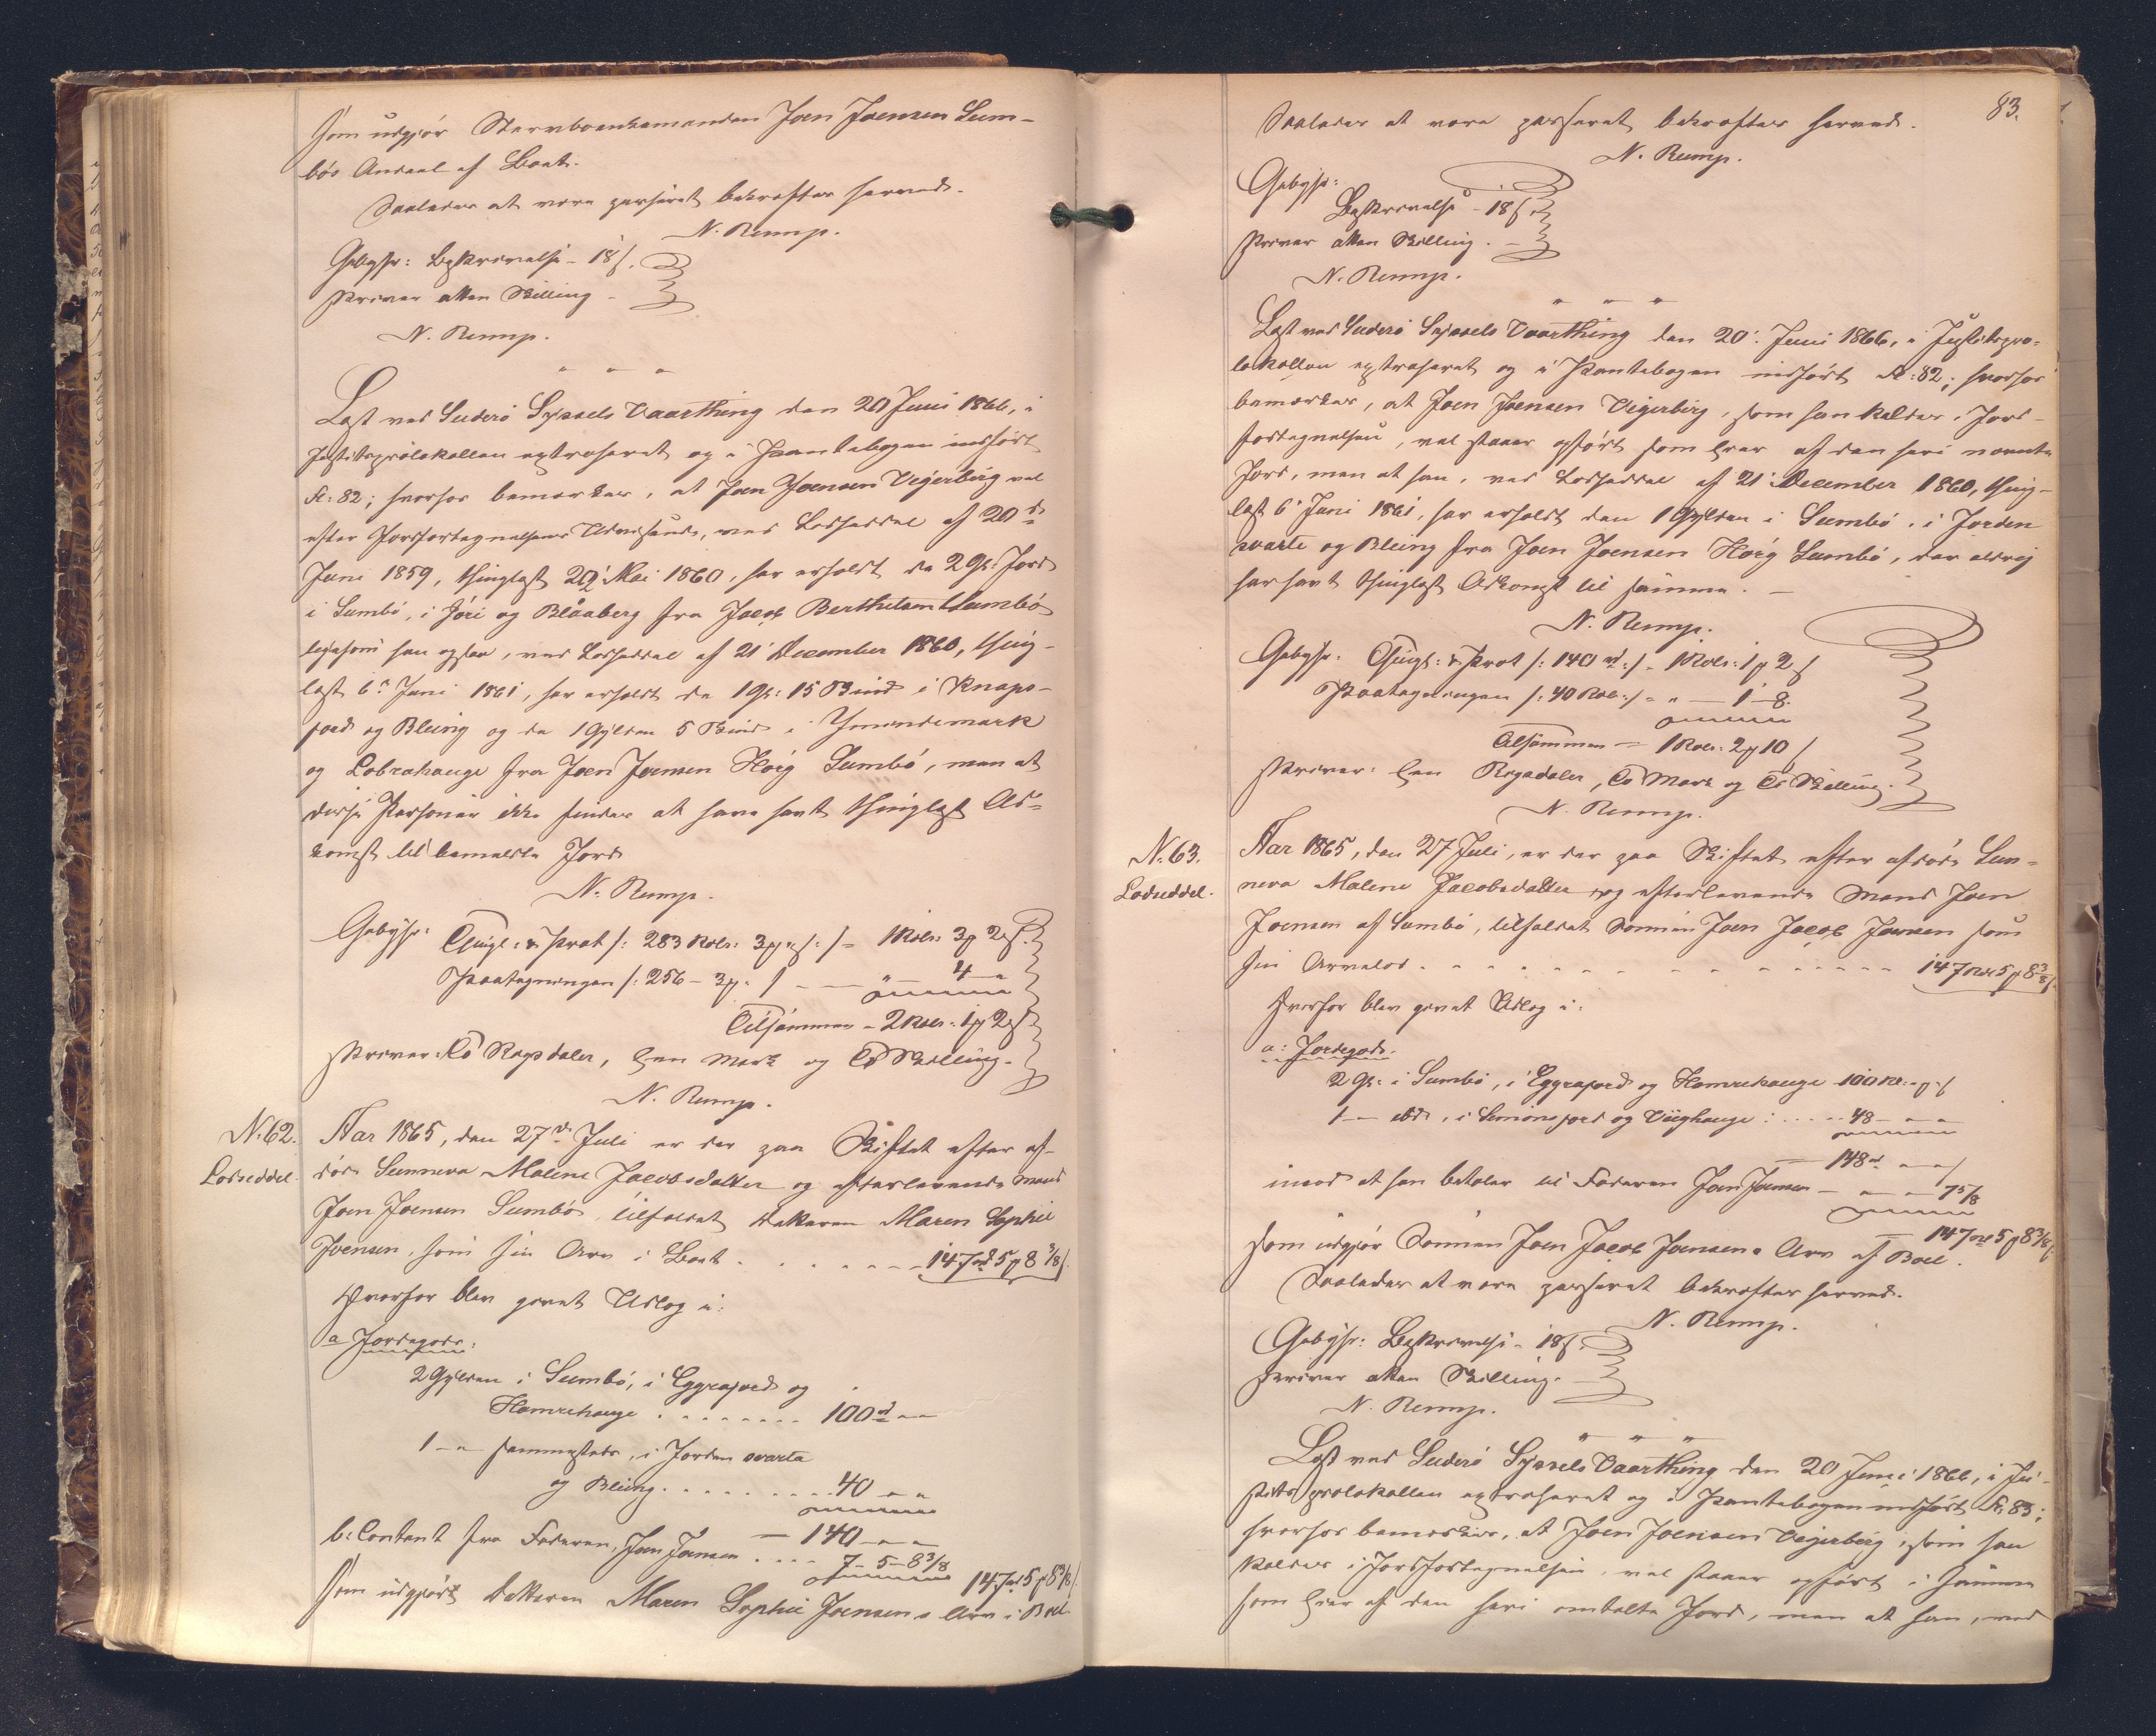 Som udgjør Stervboenkemanden Joen Joensen Sum-
bøs Andeel af Boet.
Saaledes at være passeret bekræftes herved.
N. Remp.
Gebyhr: Beskrivelse - 18 s.
skriver atten Skilling -
N. Remp.
" " "
Læst ved Suderø Syssels Vaarthing den 20 Juni 1866, i
Justitsprotokollen extraheret og i Pantebogen indført
Fol: 82; hvorhos bemærkes, at Joen Joensen Vejerberg vel
efter Jordfortegnelsens Udvisende, ved Lodseddel af 20de
Juni 1859, thinglæst 29' Mai 1860, har erholdt de 2 Gl: Jord
i Sumbø, i Jóri og Blåaberg fra Jacob Berthelsen Sumbø
ligesom han ogsaa, ved Lodseddel af 21' December 1860, thing-
læst 6' Juni 1861, har erholdt de 1 Gl: 15 Skind i Knaps-
jord og Bleing og de 1 Gylden 5 Skind i Ymundemark
og Lobrahauge fra Joen Joensen Hórg Sumbø, men at
disse Personer ikke findes at have havt thinglæst Ad-
komst til bemeldte Jord.
N. Remp.
Gebyhr: Thingl: & Prot /: 283 Rdlr: 3 " s :/ - 1 Rdlr 3 2 s.
Paategningen /: 256 - 3 : / - - " 4 "
Tilsammen - 2 Rdlr: 1 2 s.
skriver: To Rigsdaler, Een Mark og To Skilling.
N. Remp.
N. 62.
Lodseddel.
Aar 1865, den 27de Juli er der paa Skiftet efter af-
døde Sunneva Malene Jacobsdatter og efterlevende Mand
Joen Joensen Sumbø, tilfaldet Datteren Maren Sophie
Joensen, som sin Arv i Boet . . . . . . . - 147 rd 5 8 3/8 s.
Hvorfor blev givet Udlæg i:
a Jordegods:
2 Gylden i Sumbø, i Eggrajord og
Hamrehauge . . . . . . . . 100 rd " "
1 - " - sammesteds, i Jorden svarta
og Bleing . . . . . . . . . 40 " "
— 140 - " -
b: Contant fra Faderen, Joen Joensen . . . . 7 - 5 - 8 3/8
147 rd 5 8 3/8 s.
Som udgjør Datteren Maren Sophie Joensens Arv i Boet.
83.
Saaledes at være passeret bekræftes herved.
N. Remp.
Gebyhr:
Beskrivelse - 18 s.
skriver atten Skilling. -
N. Remp.
" " "
Læst ved Suderø Syssels Vaarthing den 20' Juni 1866, i Justitspro-
tokollen extraheret og i Pantebogen indført Fol: 82; hvorhos
bemærkes, at Joen Joensen Vejerberg, som han kaldes i Jord-
fortegnelsen, vel staaer opført som Eier af den heri nævnte
Jord, men at han, ved Lodseddel af 21' December 1860, thing-
læst 6' Juni 1861, har erholdt den 1 Gylden i Sumbø, i Jorden
svarte og Bleing fra Joen Joensen Hórg Sumbø, der aldrig
har havt thinglæst Adkomst til samme. —
N. Remp.
Gebyhr. Thingl: & Prot /: 140 rd :/ - 1 Rdlr: 1 2 s
Paategningen /: 40 Rdlr :/ - " — 1 - 8.
Tilsammen — 1 Rdlr: 2 10 s
skriver: Een Rigsdaler, To Mark og Ti Skilling.
N. Remp.
N. 63.
Lodseddel.
Aar 1865, den 27 Juli, er der paa Skiftet efter afdøde Sun-
neva Malene Jacobsdatter og efterlevende Mand Joen
Joensen af Sumbø, tilfaldet Sønnen Joen Jacob Joensen som
sin Arvelod . . . . . . . . . . . . 147 rd 5 8 3/8 s.
Hvorfor blev givet Udlæg i:
a: Jordegods.
2 Gl: i Sumbø, i Eggrajord og Hamrehauge 100 rd: - " - s
1 - " ibid., i Simonsjord og Viighauge : . . . . 48 - " -
— 148 rd " " s
imod at han betaler til Faderen Joen Joensen — " — " — 7 5/8
— 147 rd 5 8 3/8 s.
som udgjør Sønnen Joen Jacob Joensens Arv af Boet.
Saaledes at være passeret bekræftes herved.
N. Remp.
Gebyhr: Beskrivelse - 18 s.
skriver atten Skilling. -
N. Remp.
" " "
Læst ved Suderø Syssels Vaarthing den 20 Juni 1866, i Ju-
stitsprotokollen extraheret og i Pantebogen indført Fol: 83;
hvorhos bemærkes, at Joen Joensen Vejerberg, som han
kaldes i Jordfortegnelsen, vel staaer opført i samme
som Eier af den heri omtalte Jord, men at han, ved